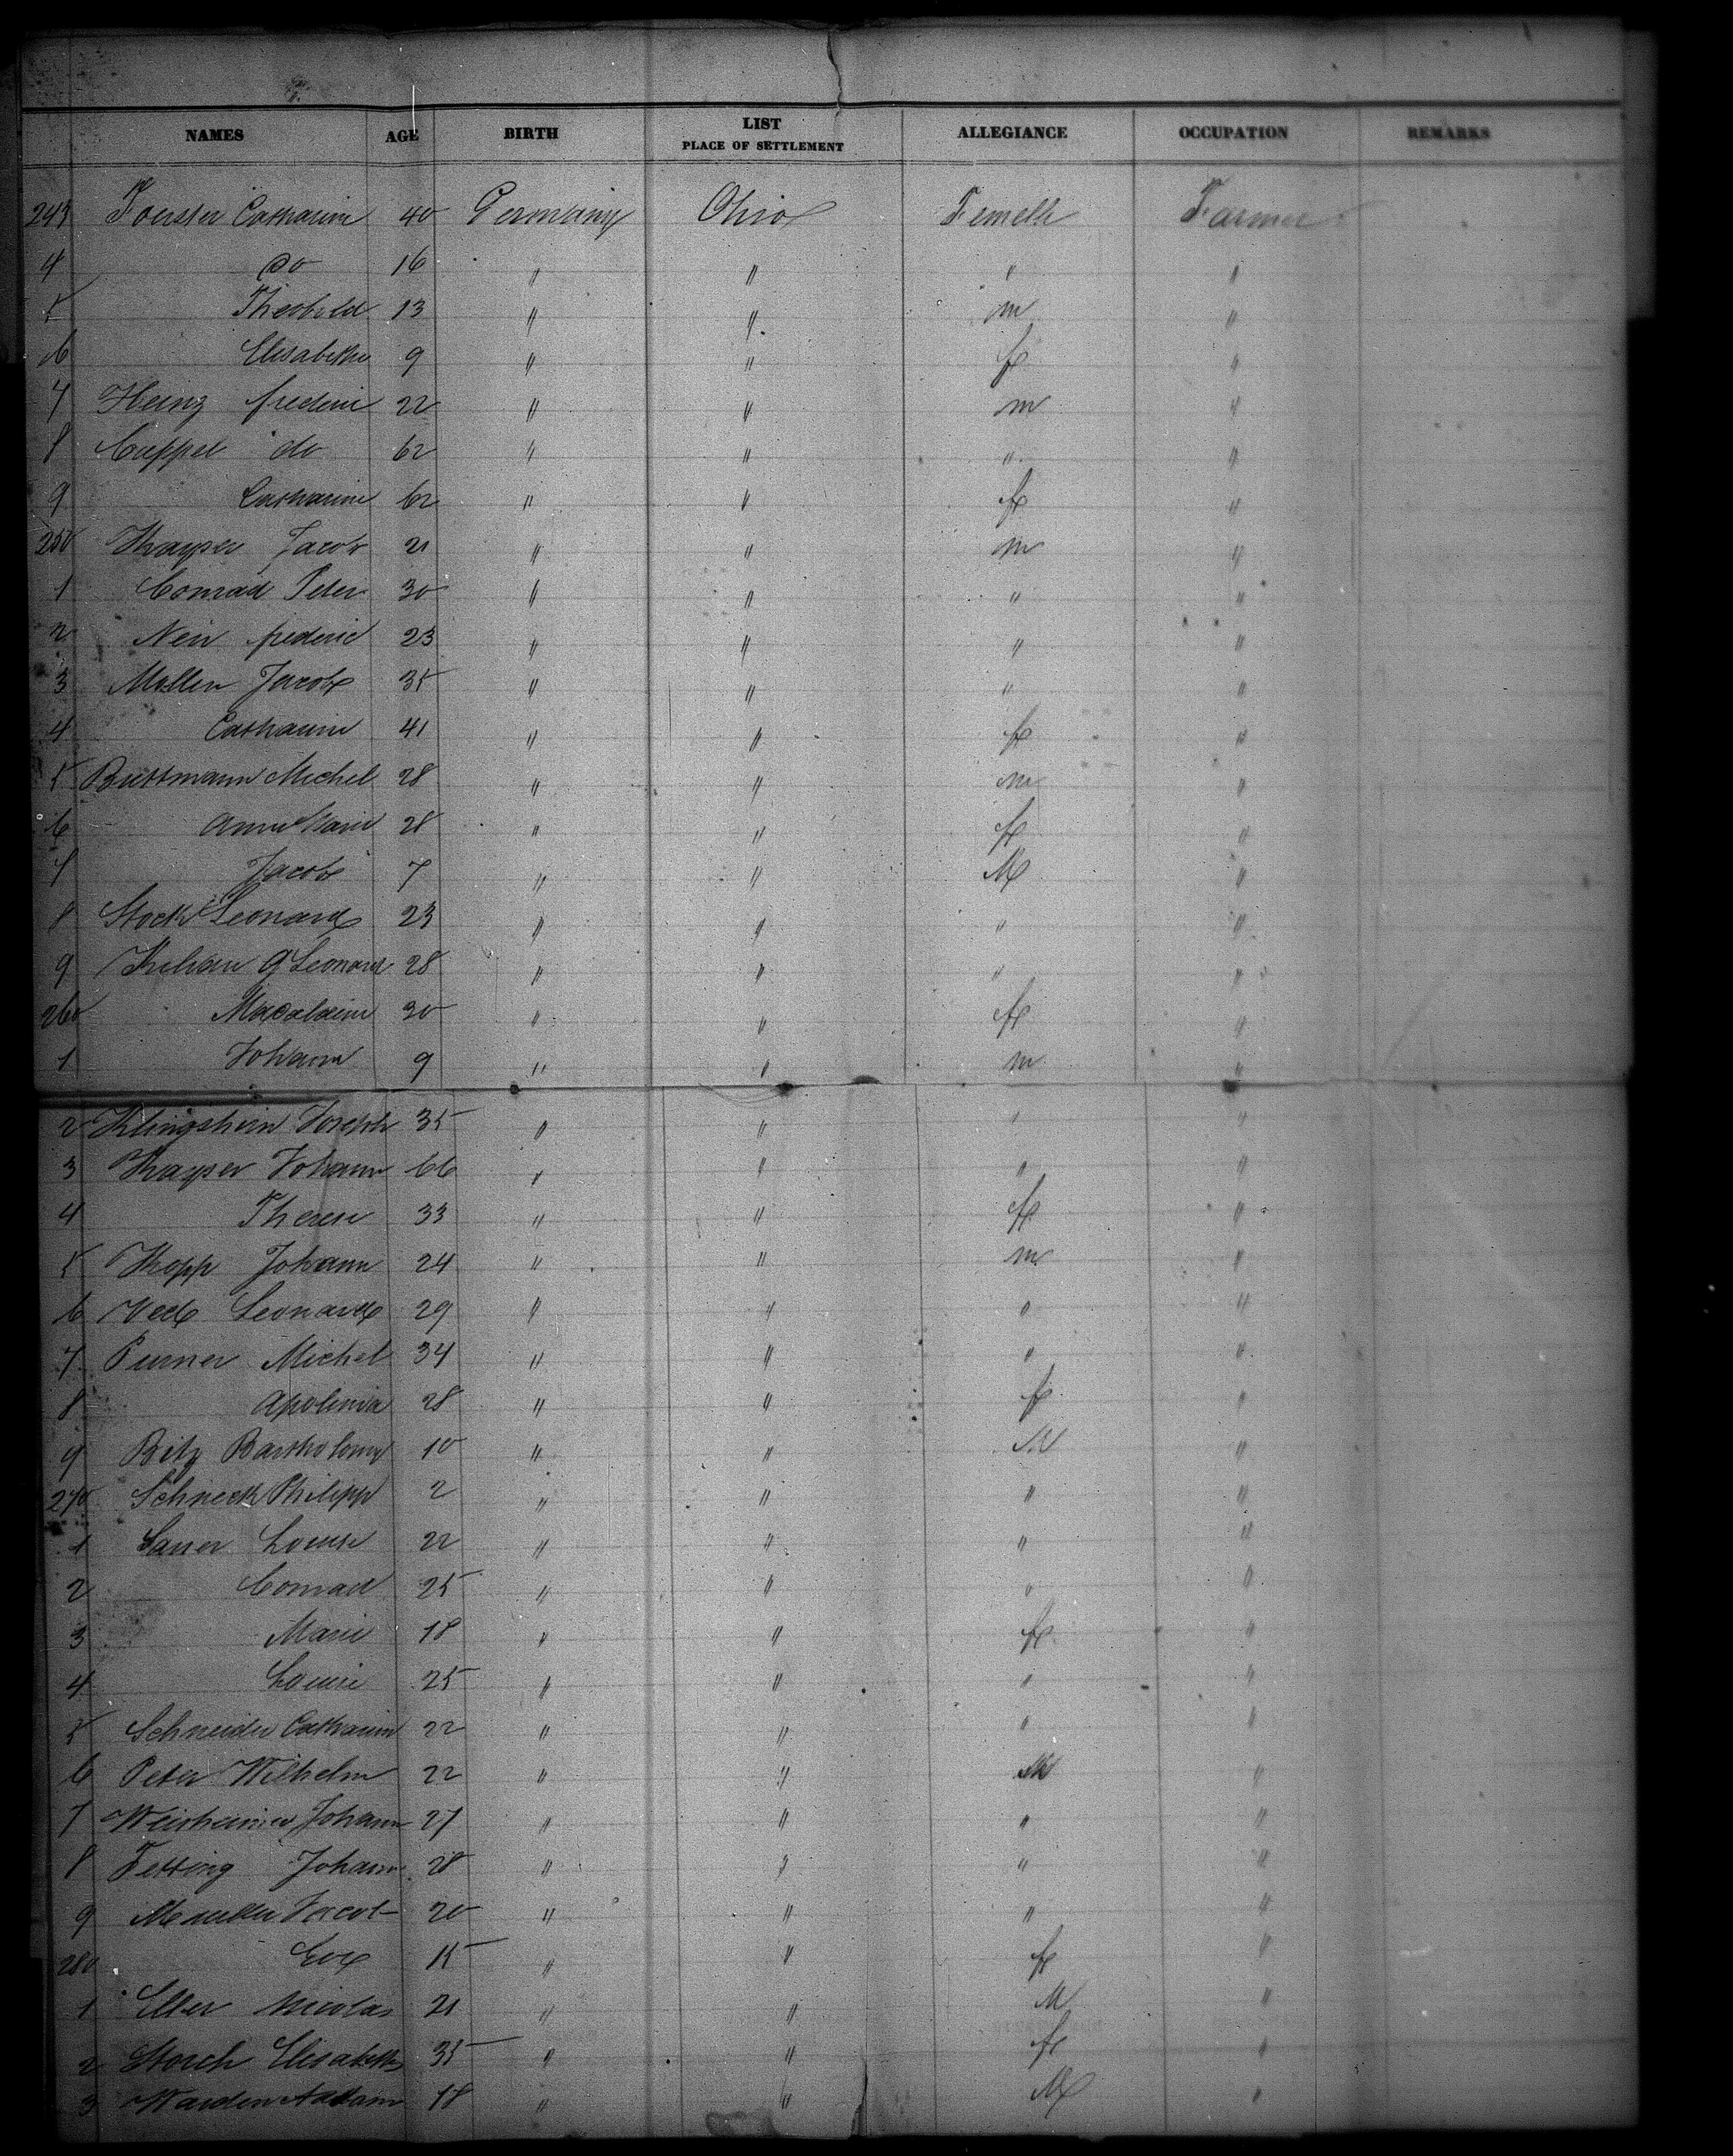 NAMES AGE BIRTH LIST PLACE OF SETTLEMENT ALLEGIANCE OCCUPATION REMARKS
243 Foerster Catharine 40 Germany Ohio Femelle Farmer
4 do 16 " " " "
5 Theobald 13 " " m "
6 Elisabethe 9 " " f "
7 Heinz frederic 22 " " m "
8 Cuppel do 62 " " " "
9 Catharine 62 " " f "
250 Kayser Jacob 21 " " m "
1 Conrad Peter 30 " " " "
2 Neu frederic 23 " " " "
3 Muller Jacob 35 " " " "
4 Catharine 41 " " f "
5 Buttmann Michel 28 " " m "
6 Anne Marie 28 " " f "
7 Jacob 7 " " M "
8 Stock Leonard 23 " " " "
9 Leonard 28 " " " "
260 30 " " f "
1 Johann 9 " " m "
2 Klingshirn Joseph 35 " " " "
3 Kayser Johann 66 " " " "
4 Therese 33 " " f "
5 Kopp Johann 24 " " m "
6 Leonard 29 " " " "
7 Purner Michel 34 " " " "
8 Apolinia 28 " " f "
9 Ritz Bartholomy 10 " " M "
270 Schneck Philipp 2 " " " "
1 Sauer Louise 22 " " " "
2 Conrad 25 " " " "
3 Marie 18 " " f "
4 Louise 25 " " " "
5 Schneider Catharine 22 " " " "
6 Peter Wilhelm 22 " " M "
7 Johann 27 " " " "
8 Fetting Johann 28 " " " "
9 Mueller Jacob 20 " " " "
280 Eva 15 " " f "
1 Elter Nicolas 21 " " M "
2 Storch Elisabeth 35 " " f "
3 Warden Adam 18 " " M "